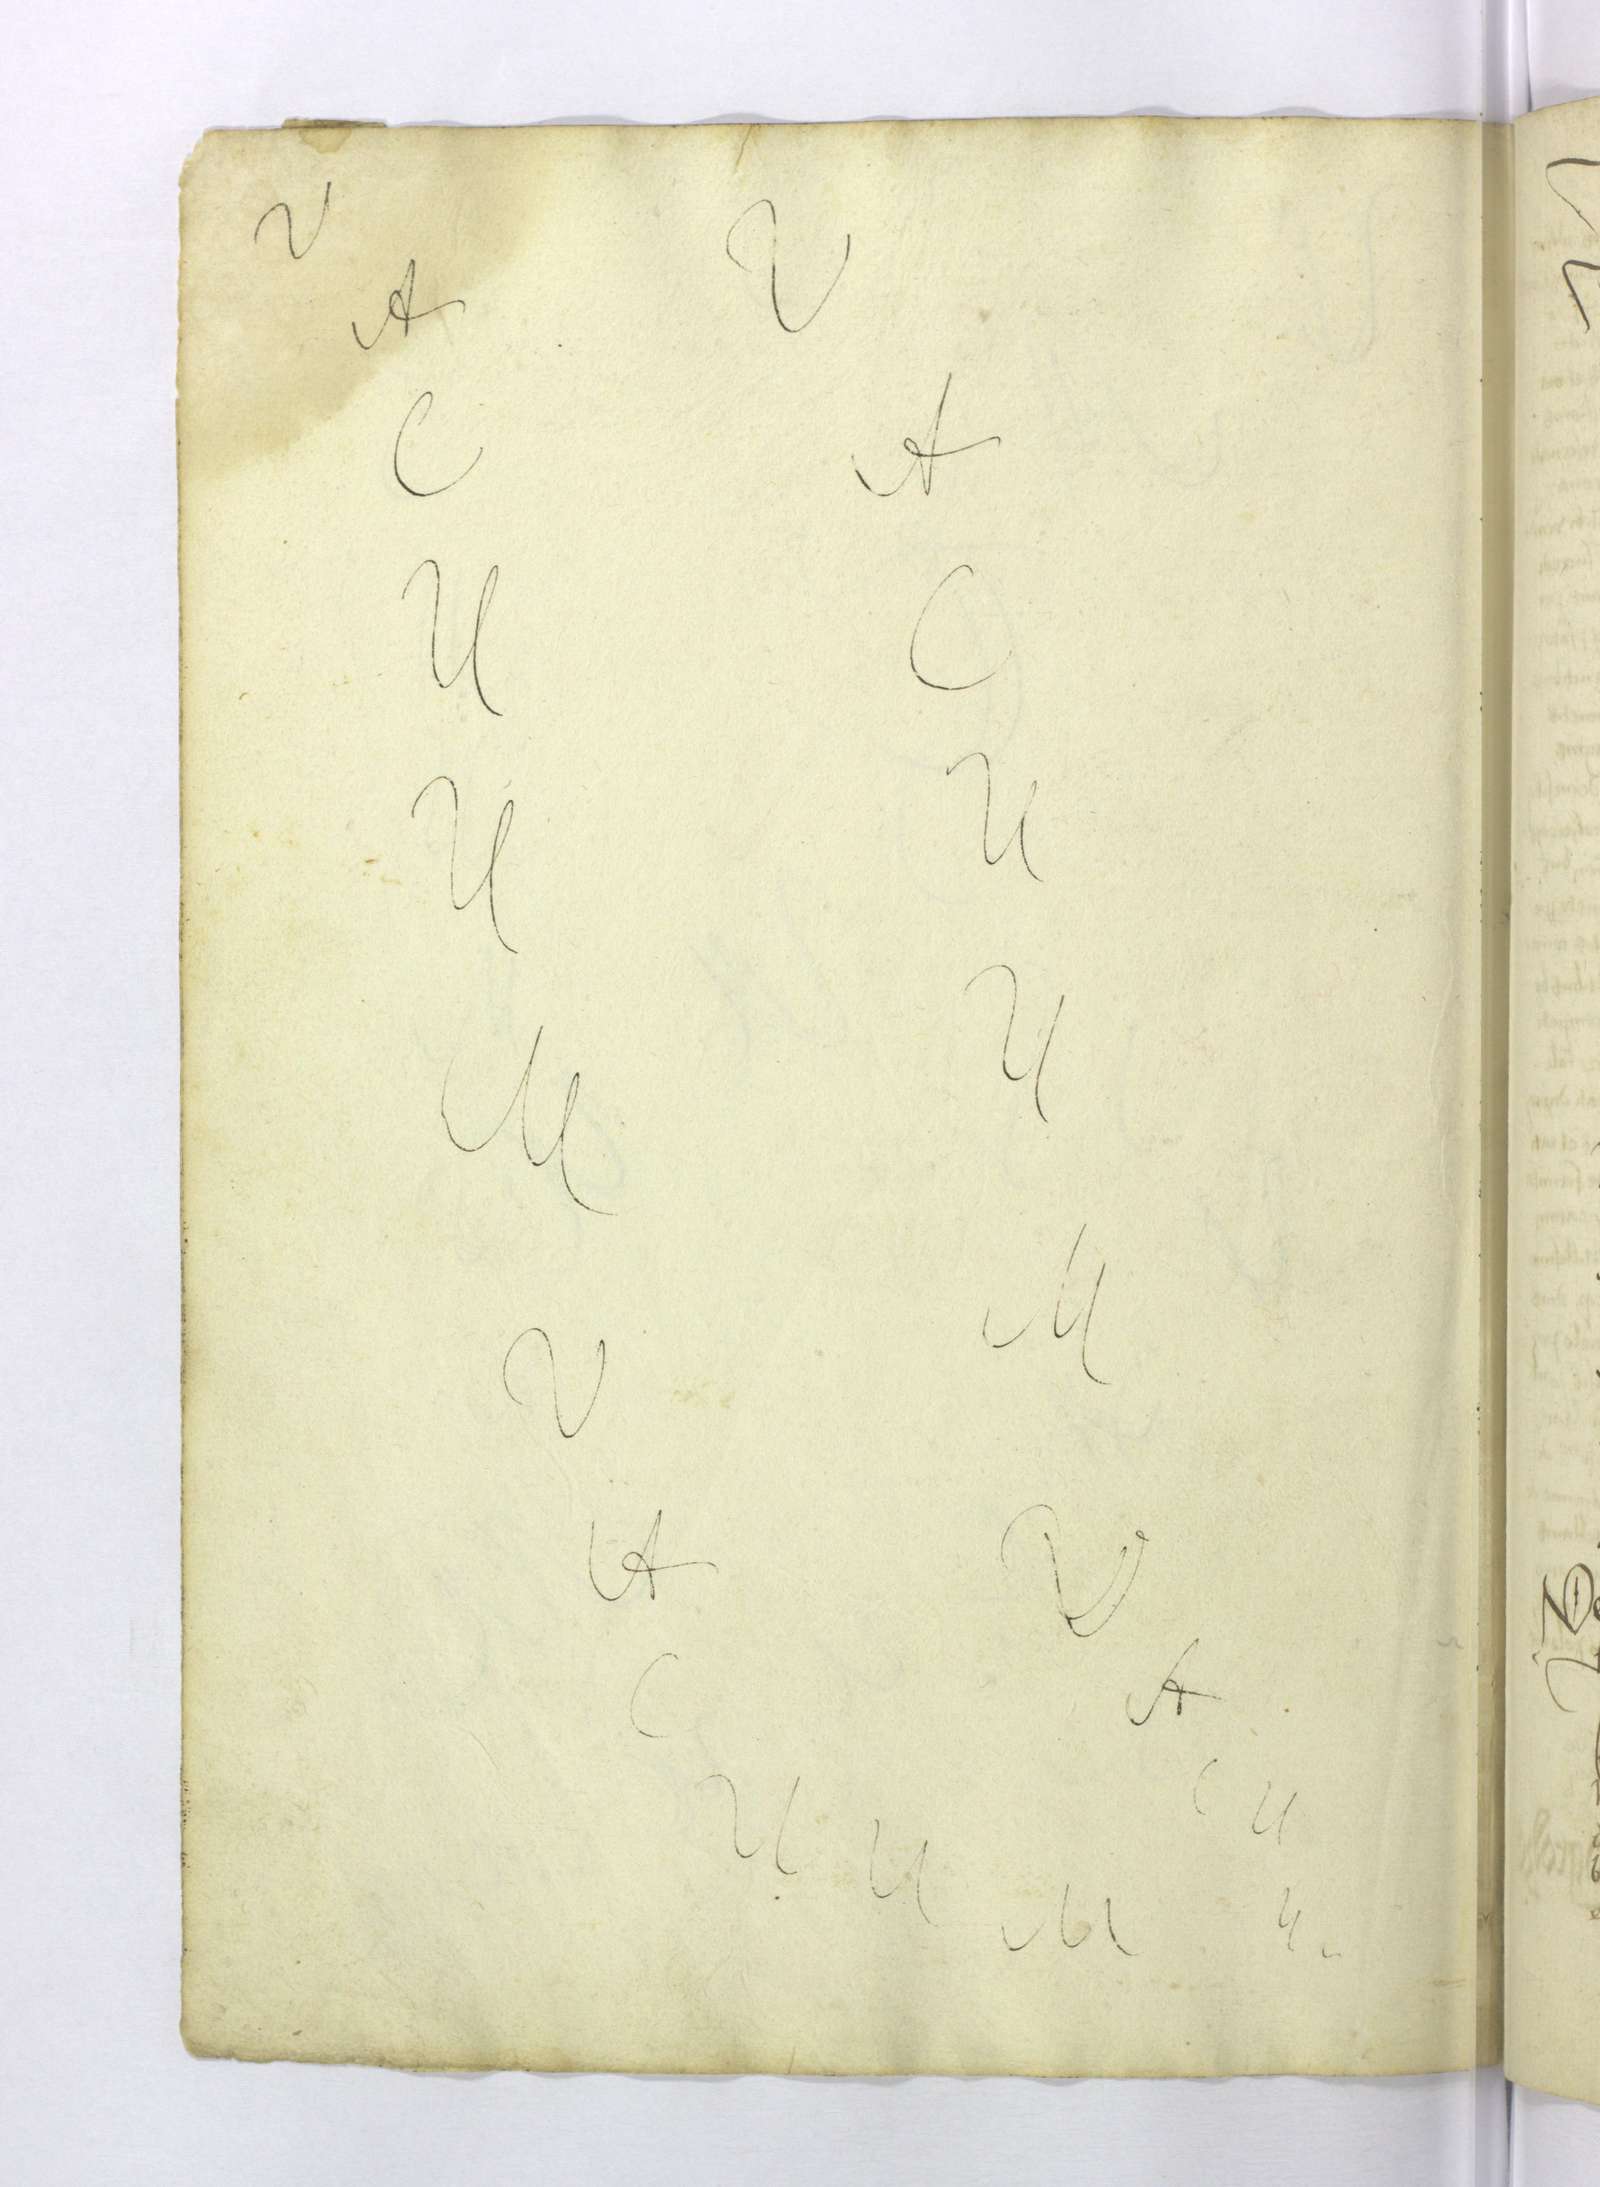 VACUUM
VACUUM
VACUUM
VACUU